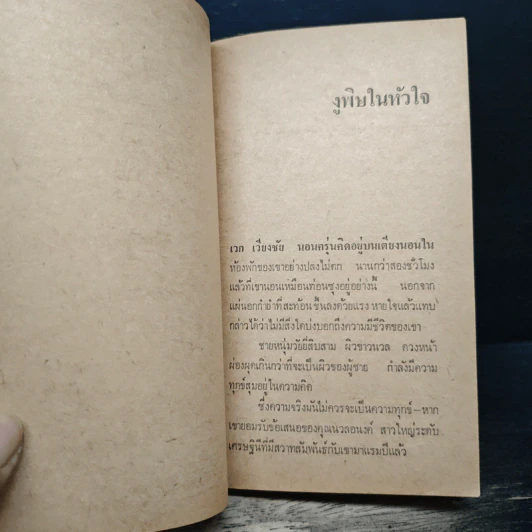 งูพิษในหัวใจ
เวก เวียงชัย นอนครุ่นคิดอยู่บนเตียงนอนใน
ห้องพักของเขาอย่างปลงไม่ตก นานกว่าสองชั่วโมง
แล้วที่เขานอนเหมือนท่อนซุงอยู่อย่างนี้ นอกจาก
แผ่นอกกำยำที่สะท้อนขึ้นลงด้วยแรงหายใจแล้วแทบ
กล่าวได้ว่าไม่มีสิ่งใดบ่งบอกถึงความมีชีวิตของเขา
ชายหนุ่มวัยยี่สิบสาม ผิวขาวนวล ดวงหน้า
ผ่องผุดเกินกว่าที่จะเป็นผิวของผู้ชาย กำลังมีความ
ทุกข์สุมอยู่ในความคิด
ซึ่งความจริงมันไม่ควรจะเป็นความทุกข์–หาก
เขายอมรับข้อเสนอของคุณนวลอนงค์ สาวใหญ่ระดับ
เศรษฐินีที่มีสวาทสัมพันธ์กับเขามาแรมปีแล้ว